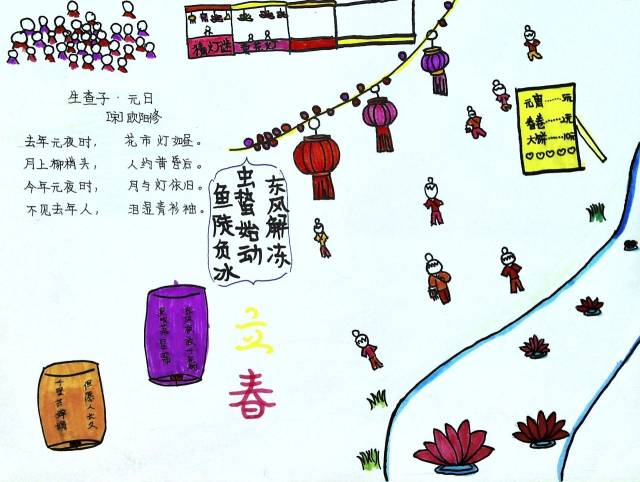 猜灯谜
生查子·元日
[宋]欧阳修
去年元夜时， 花市灯如昼。
月上柳梢头， 人约黄昏后。
今年元夜时， 月与灯依旧。
不见去年人， 泪湿青衫袖。
元宵
春卷
大饼
东风解冻
虫蛰始动
鱼陡负冰
立春
但愿人长久
千里共婵娟